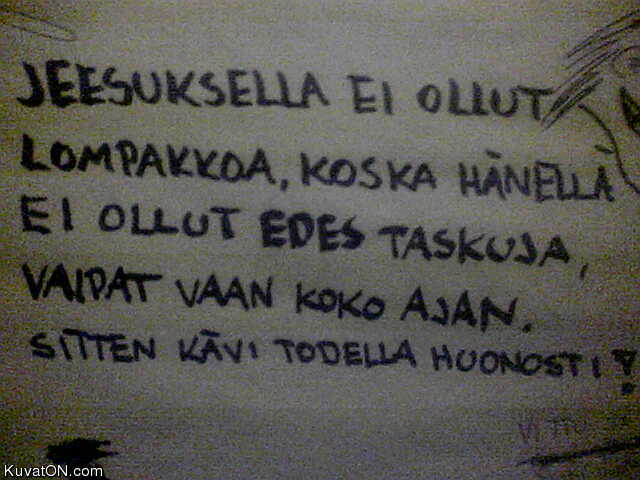 JEESUKSELLA EI OLLUT
LOMPAKKOA, KOSKA HÄNELLÄ
EI OLLUT EDES TASKUJA,
VAIPAT VAAN KOKO AJAN.
SITTEN KÄVI TODELLA HUONOSTI!
VITTU
KuvatON.com